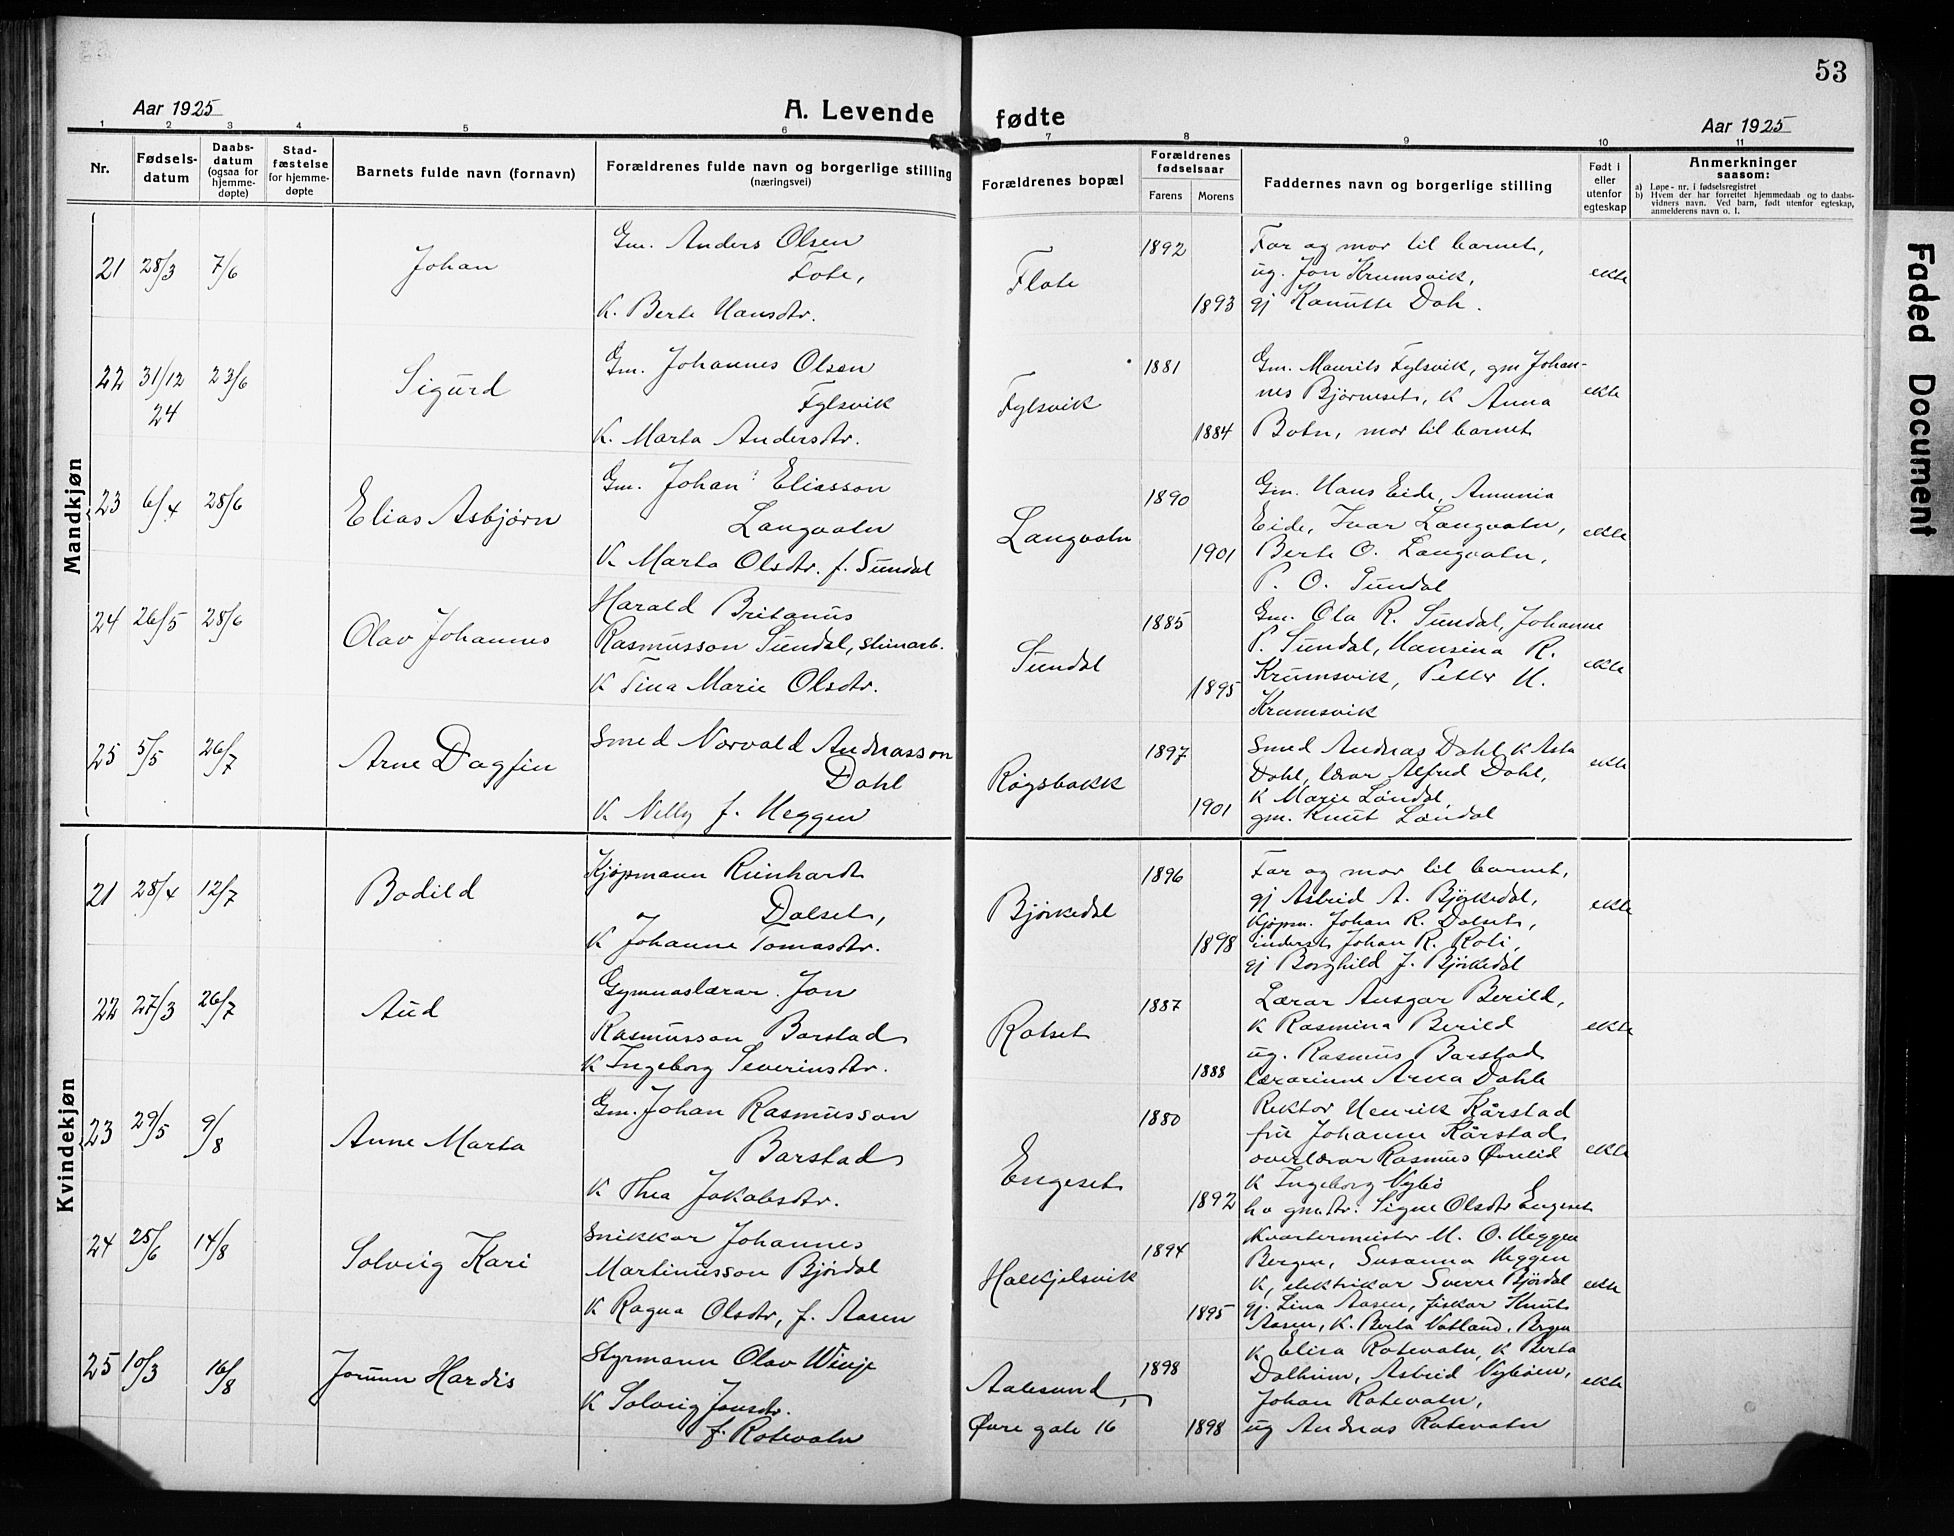 53
Aar 1925
A. Levende
fødte
Aar 1925
1 2 3 4 5 6 7 8 9 10 11
Nr.
Fødsels-
datum
Daabs-
datum
(ogsaa for
hjemme-
døpte)
Stad-
fæstelse
for hjemme-
døpte
Barnets fulde navn (fornavn)
Forældrenes fulde navn og borgerlige stilling
(næringsvei)
Forældrenes bopæl
Forældrenes
fødselsaar
Farens
Morens
Faddernes navn og borgerlige stilling
Født i
eller
utenfor
egteskap
Anmerkninger
saasom:
a) Løpe-nr. i fødselsregistret
b) Hvem der har forrettet hjemmedaab og to daabs-
vidners navn. Ved barn, født utenfor egteskap,
anmelderens navn o. l.
Faded Document
Mandkjøn
21 28/3 7/6 Johan
Gm. Anders Olsen
Fote,
K. Berte Hansdtr.
Flote
1892
1893
Far og mor til barnet,
ug. Jon Krumsvik,
gj Kanutte Dah.
ekte
22 31/12 23/6 Sigurd
24
Gm. Johannes Olsen
Fylsvik
K. Marta Andersdtr.
Fylsvik
1881
1884
Gm. Maurits Fylsvik, gm Johan-
nes Bjørneset, K Anna
Botn, mor til barnet
ekte
23 6/4 28/6 Elias Asbjørn
Gm. Johan Eliasson
Langvatn
K. Marta Olsdtr. f. Sundal
Langvatn
1890
1901
Gm. Hans Eide, Ammnia
Eide, Ivar Langvatn,
Berte O. Langvatn,
P. O. Sundal
ekte
24 26/5 28/6 Olav Johannes
Harald Britanus
Rasmusson Sundal, steinarb.
K Tina Marie Olsdtr.
Sundal
1885
1895
Gm. Ola R. Sundal, Johanne
P. Sundal, Hansina R.
Krumsvik, Petter H.
Krumsvik
ekte
25 5/5 26/7 Arne Dagfin
Smed Norvald Andrasson
Dahl
K Nelly f. Heggen
Røgsbakk
1897
1901
Smed Andras Dahl K Asta
Dahl, lærar Alfred Dahl,
K Marie Løndal,
gm. Knut Løndal
ekte
Kvindekjøn
21 28/4 12/7 Bodild
Kjøpmann Reinhardt
Dalset,
K Johanne Tomasdtr.
Bjørkedal
1896
1898
Far og mor til barnet,
gj Astrid A. Bjørkedal,
Kjøpm. Johan R. Dalset,
inderst Johan R. Roti,
gj Borghild J. Bjørkedal
ekte
22 27/3 26/7 Aud
Gymnaslærar. Jon
Rasmusson Barstad
K Ingeborg Severinsdtr.
Rotset
1887
1888
Lærar Ansgar Berild,
K Rasmina Berild
ug. Rasmus Barstad
lærarinne Arna Dahle
ekte
23 29/5 9/8 Anne Marta
Gm. Johan Rasmusson
Barstad
K Thea Jakobsdtr.
Engeset
1880
1892
Rektor Henrik Kårstad
frú Johanne Kårstad
overlærar Rasmus Øvrelid
K Ingeborg Vybø
h v gmdtr. Signe Olsdtr Engeset
ekte
24 25/6 14/8 Solveig Kari
Snikkar Johannes
Martinusson Bjørdal
K Ragna Olsdtr, f. Aasen
Halkjelsvik
1894
1895
Kvartermeister M. O. Heggen
Bergen, Susanna Heggen
K, elektrikar Sverre Bjørdal
gj. Lina Aasen, fiskar Knut
Aasen, K. Berta Vatland, Brgen
ekte
25 10/3 16/8 Jorunn Hardis
Styrmann Olav Winje
K Solveig Jonsdtr.
f. Rotevatn
Aalesund,
Øvre gate 16
1898
1898
K Elisa Rotevatn, K Berta
Dalheim, Astrid Vybøen,
Johan Rotevatn,
ug Andras Rotevatn
ekte